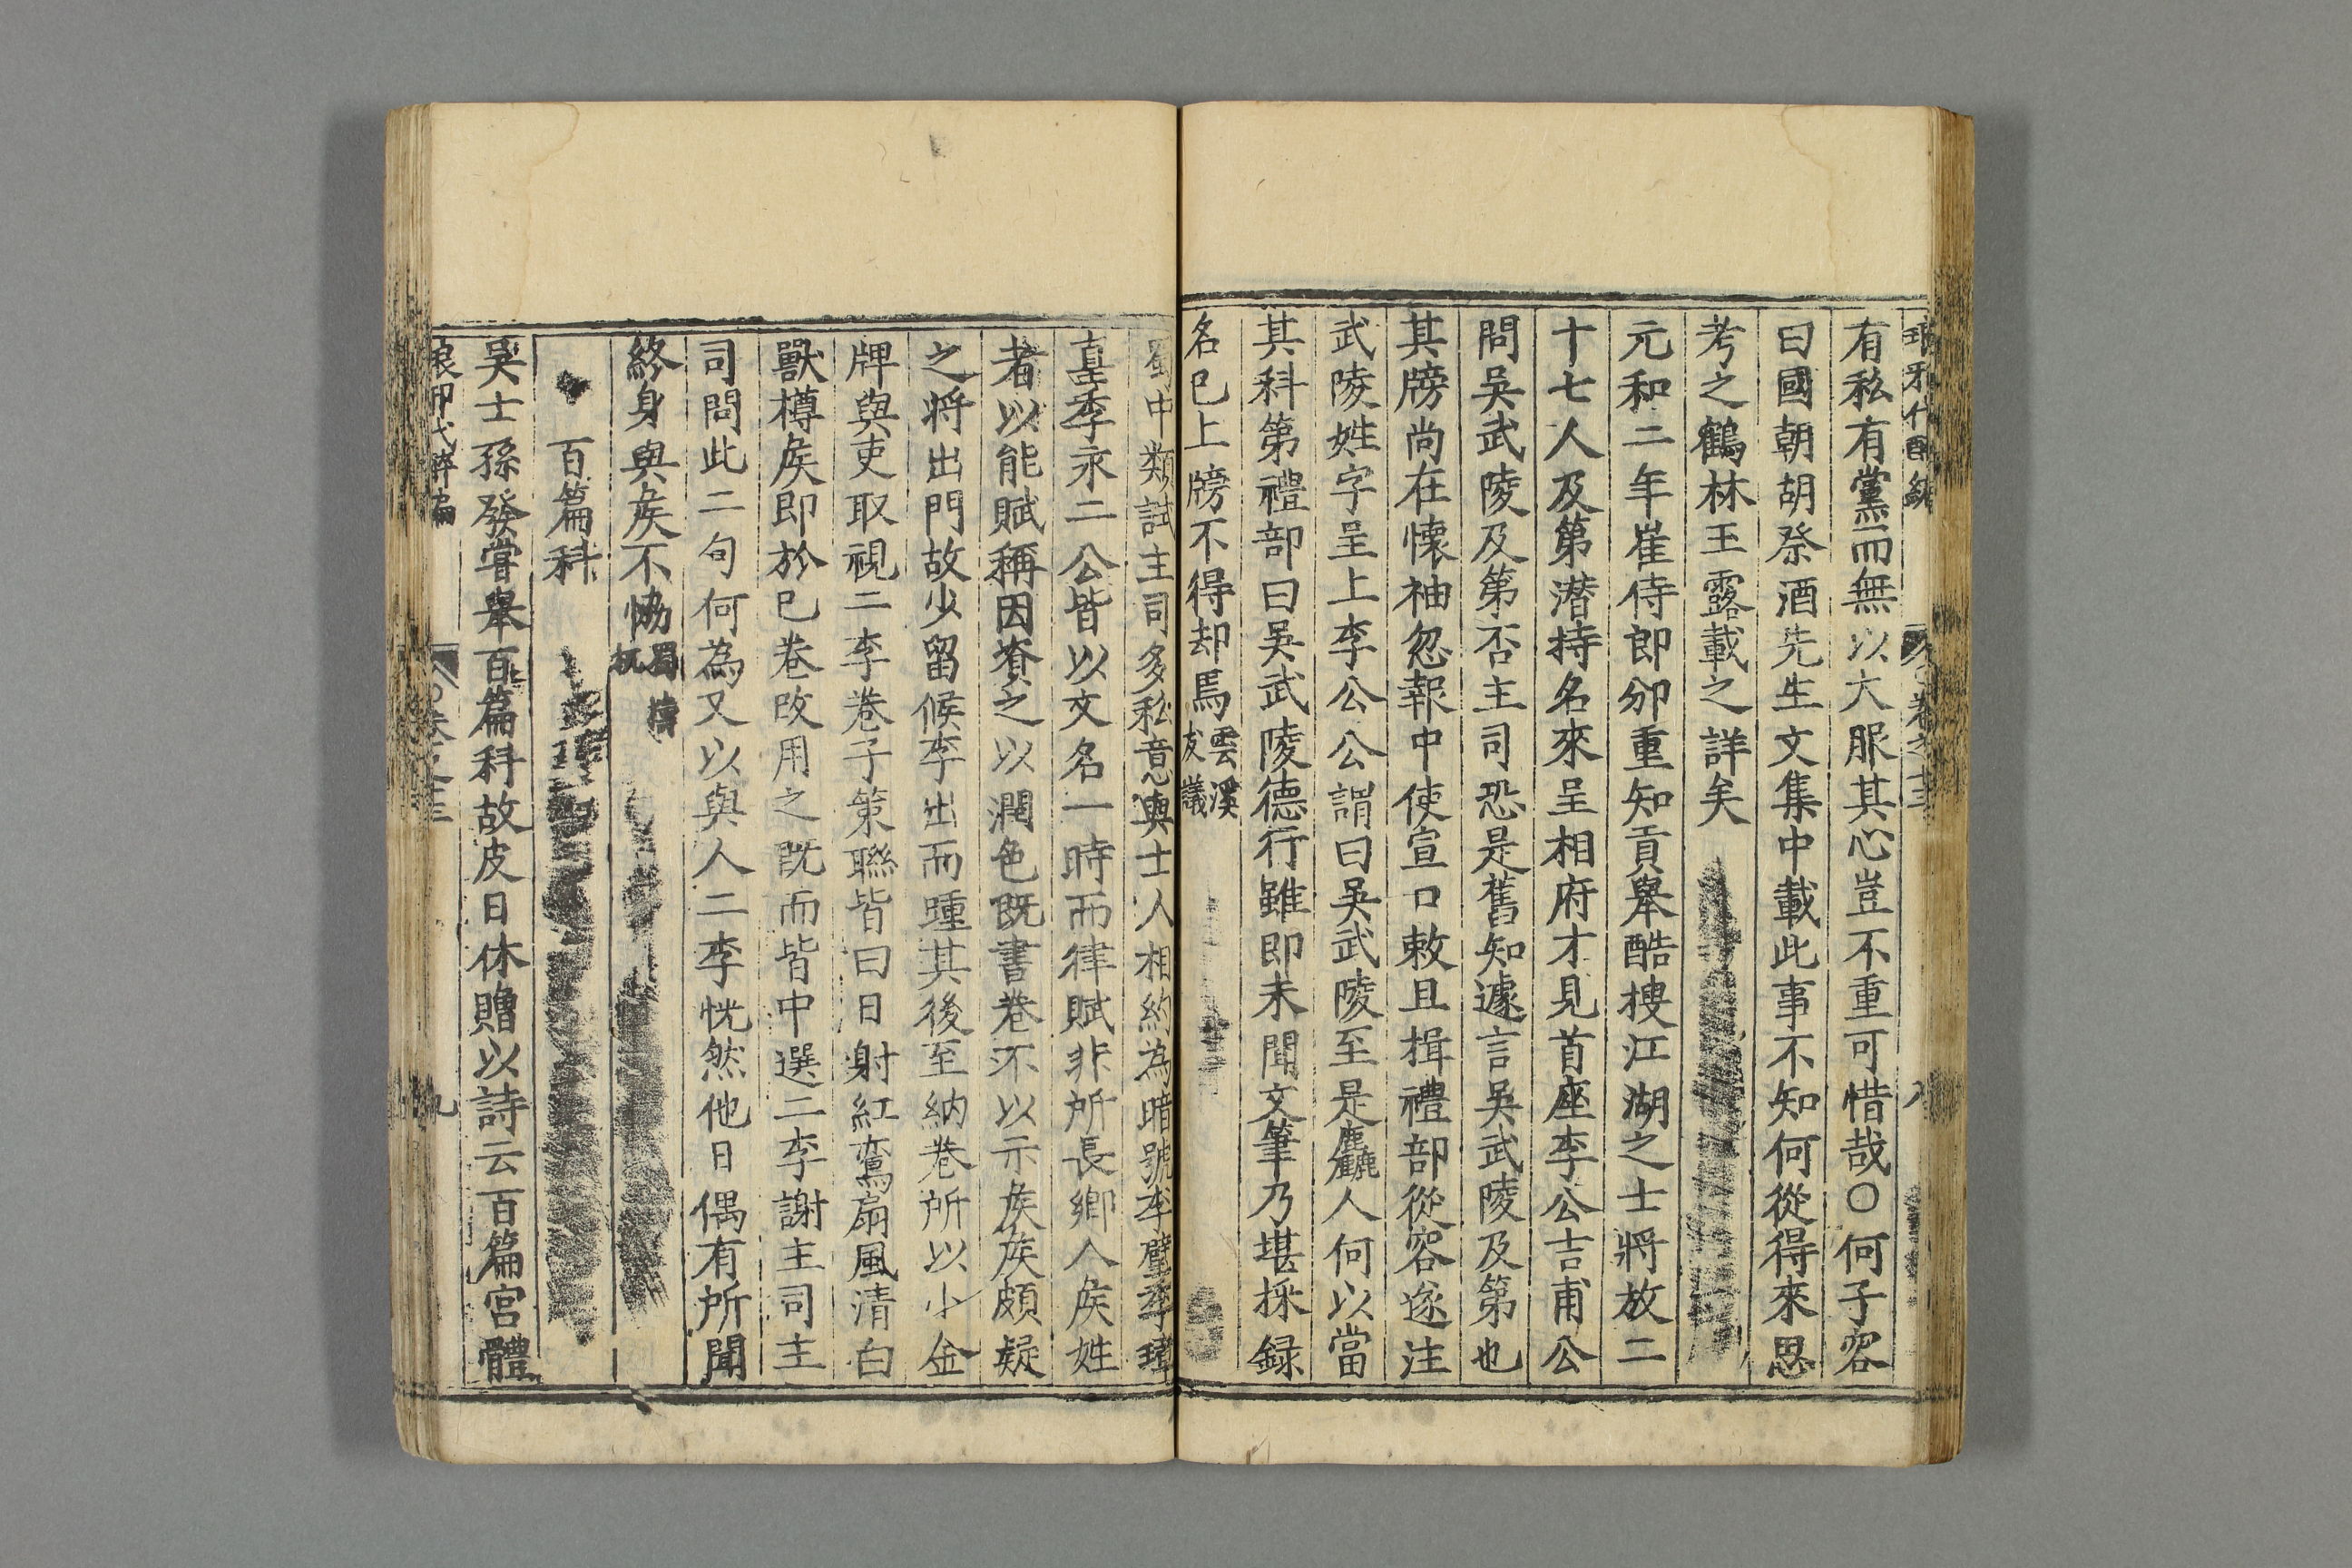 有私有黨而無以大服其心豈不重可惜哉○何子容
曰國朝胡祭酒先生文集中載此事不知何從得來思
考之鶴林玉露載之詳矣
元和二年崔侍郎邠重知貢舉酷搜江湖之士將放二
十七人及第潜持名來呈相府才見首座李公吉甫公
問吳武陵及第否主司恐是舊知遽言吳武陵及第也
其牓尚在懷袖忽報中使宣口敕且揖禮部從容遂注
武陵姓字呈上李公公謂曰吳武陵至是麤人何以當
其科第禮部曰吳武陵德行雖即未聞文筆乃堪採録
名已上牓不得却焉 雲溪友議
蜀中類試主司多私意與士人相約為暗號李壁李㙓
季永二公皆以文名一時而律賦非所長鄉人侯姓
者以能賦稱因資之以潤色既書卷不以示侯侯頗疑
之將出門故少留候李出而踵其後至納卷所以小金
牌與吏取視二李卷子策聯皆曰日射紅鸞扇風清白
獸樽侯即於已卷改用之既而皆中選二李謝主司主
司問此二句何為又以與人二李恍然他日偶有所聞
終身與侯不恊
百篇科
吳士孫發嘗舉百篇科故皮日休贈以詩云百篇宮體